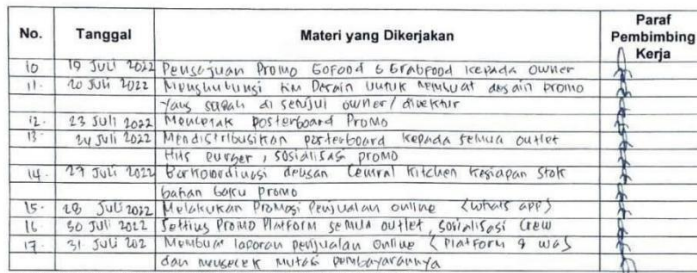 No. Tanggal Materi yang Dikerjakan Paraf Pembimbing Kerja
10 19 Juli 2022 Pengajuan Promo GoFood & Grabfood kepada Owner
11. 20 Juli 2022 Menghubungi tim Desain untuk membuat desain promo
yang sudah di setujui owner / direktur
12. 23 Juli 2022 Mencetak posterboard Promo
13. 24 Juli 2022 Mendistribusikan posterboard kepada semua outlet
Hits Burger, sosialisasi promo
14. 27 Juli 2022 Berkoordinasi dengan Central Kitchen kesiapan stok
bahan baku promo
15. 28 Juli 2022 Melakukan Promosi Penjualan online (whats app)
16. 30 Juli 2022 Setting Promo Platform semua outlet, sosialisasi crew
17. 31 Juli 202 Membuat laporan penjualan online ( Platform & wa)
dan mengecek mutasi pembayarannya